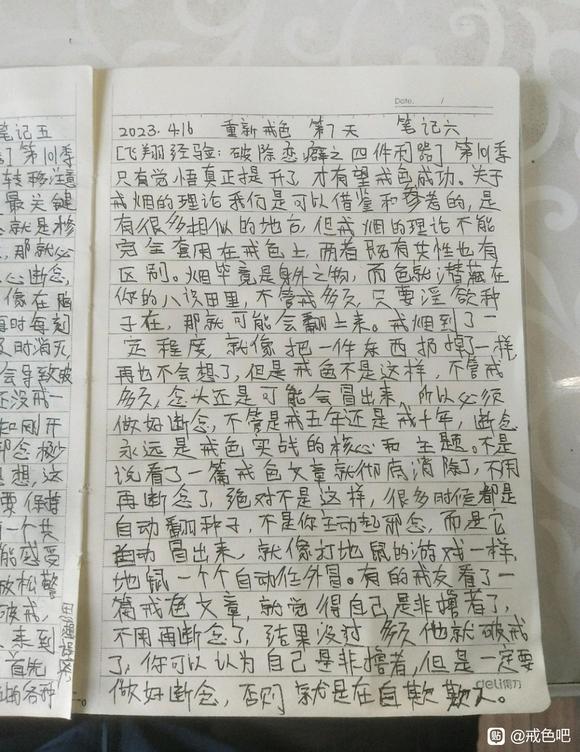 笔记五
】第101季
转移注意
最关键
就是核
,那就必
心断念,
像在脑
每时每刻
及时消灭,
会导致破
还没戒一
和刚开
邪念极少
思想,这
要保持
一个共
能感受
放松警
破戒,
来到
首先
的各种
Date. /
2023.4.16 重新戒色 第7天 笔记六
[飞翔经验:破除恋癖之四件利器]第101季
只有觉悟真正提升了,才有望戒色成功。关于
戒烟的理论我们是可以借鉴和参考的,是
有很多相似的地方,但戒烟的理论不能
完全套用在戒色上,两者既有共性也有
区别。烟毕竟是身外之物,而色就潜藏在
你的八识田里,不管戒多久,只要淫欲种
子在,那就可能会翻上来。戒烟到了一
定程度,就像把一件东西扔掉了一样,
再也不会想了,但是戒色不是这样,不管戒
多久,念头还是可能会冒出来,所以必须
做好断念,不管是戒五年还是戒十年,断念
永远是戒色实战的核心和主题。不是
说看了一篇戒色文章就彻底消除了,不用
再断念了,绝对不是这样,很多时候都是
自动翻种子,不是你主动起邪念,而是它
自动冒出来,就像打地鼠的游戏一样,
地鼠一个个自动往外冒。有的戒友看了一
篇戒色文章,就觉得自己是非撸者了,
不用再断念了,结果没过多久他就破戒
了,你可以认为自己是非撸者,但是一定要
做好断念,否则就是在自欺欺人。
deli得力
贴 @戒色吧